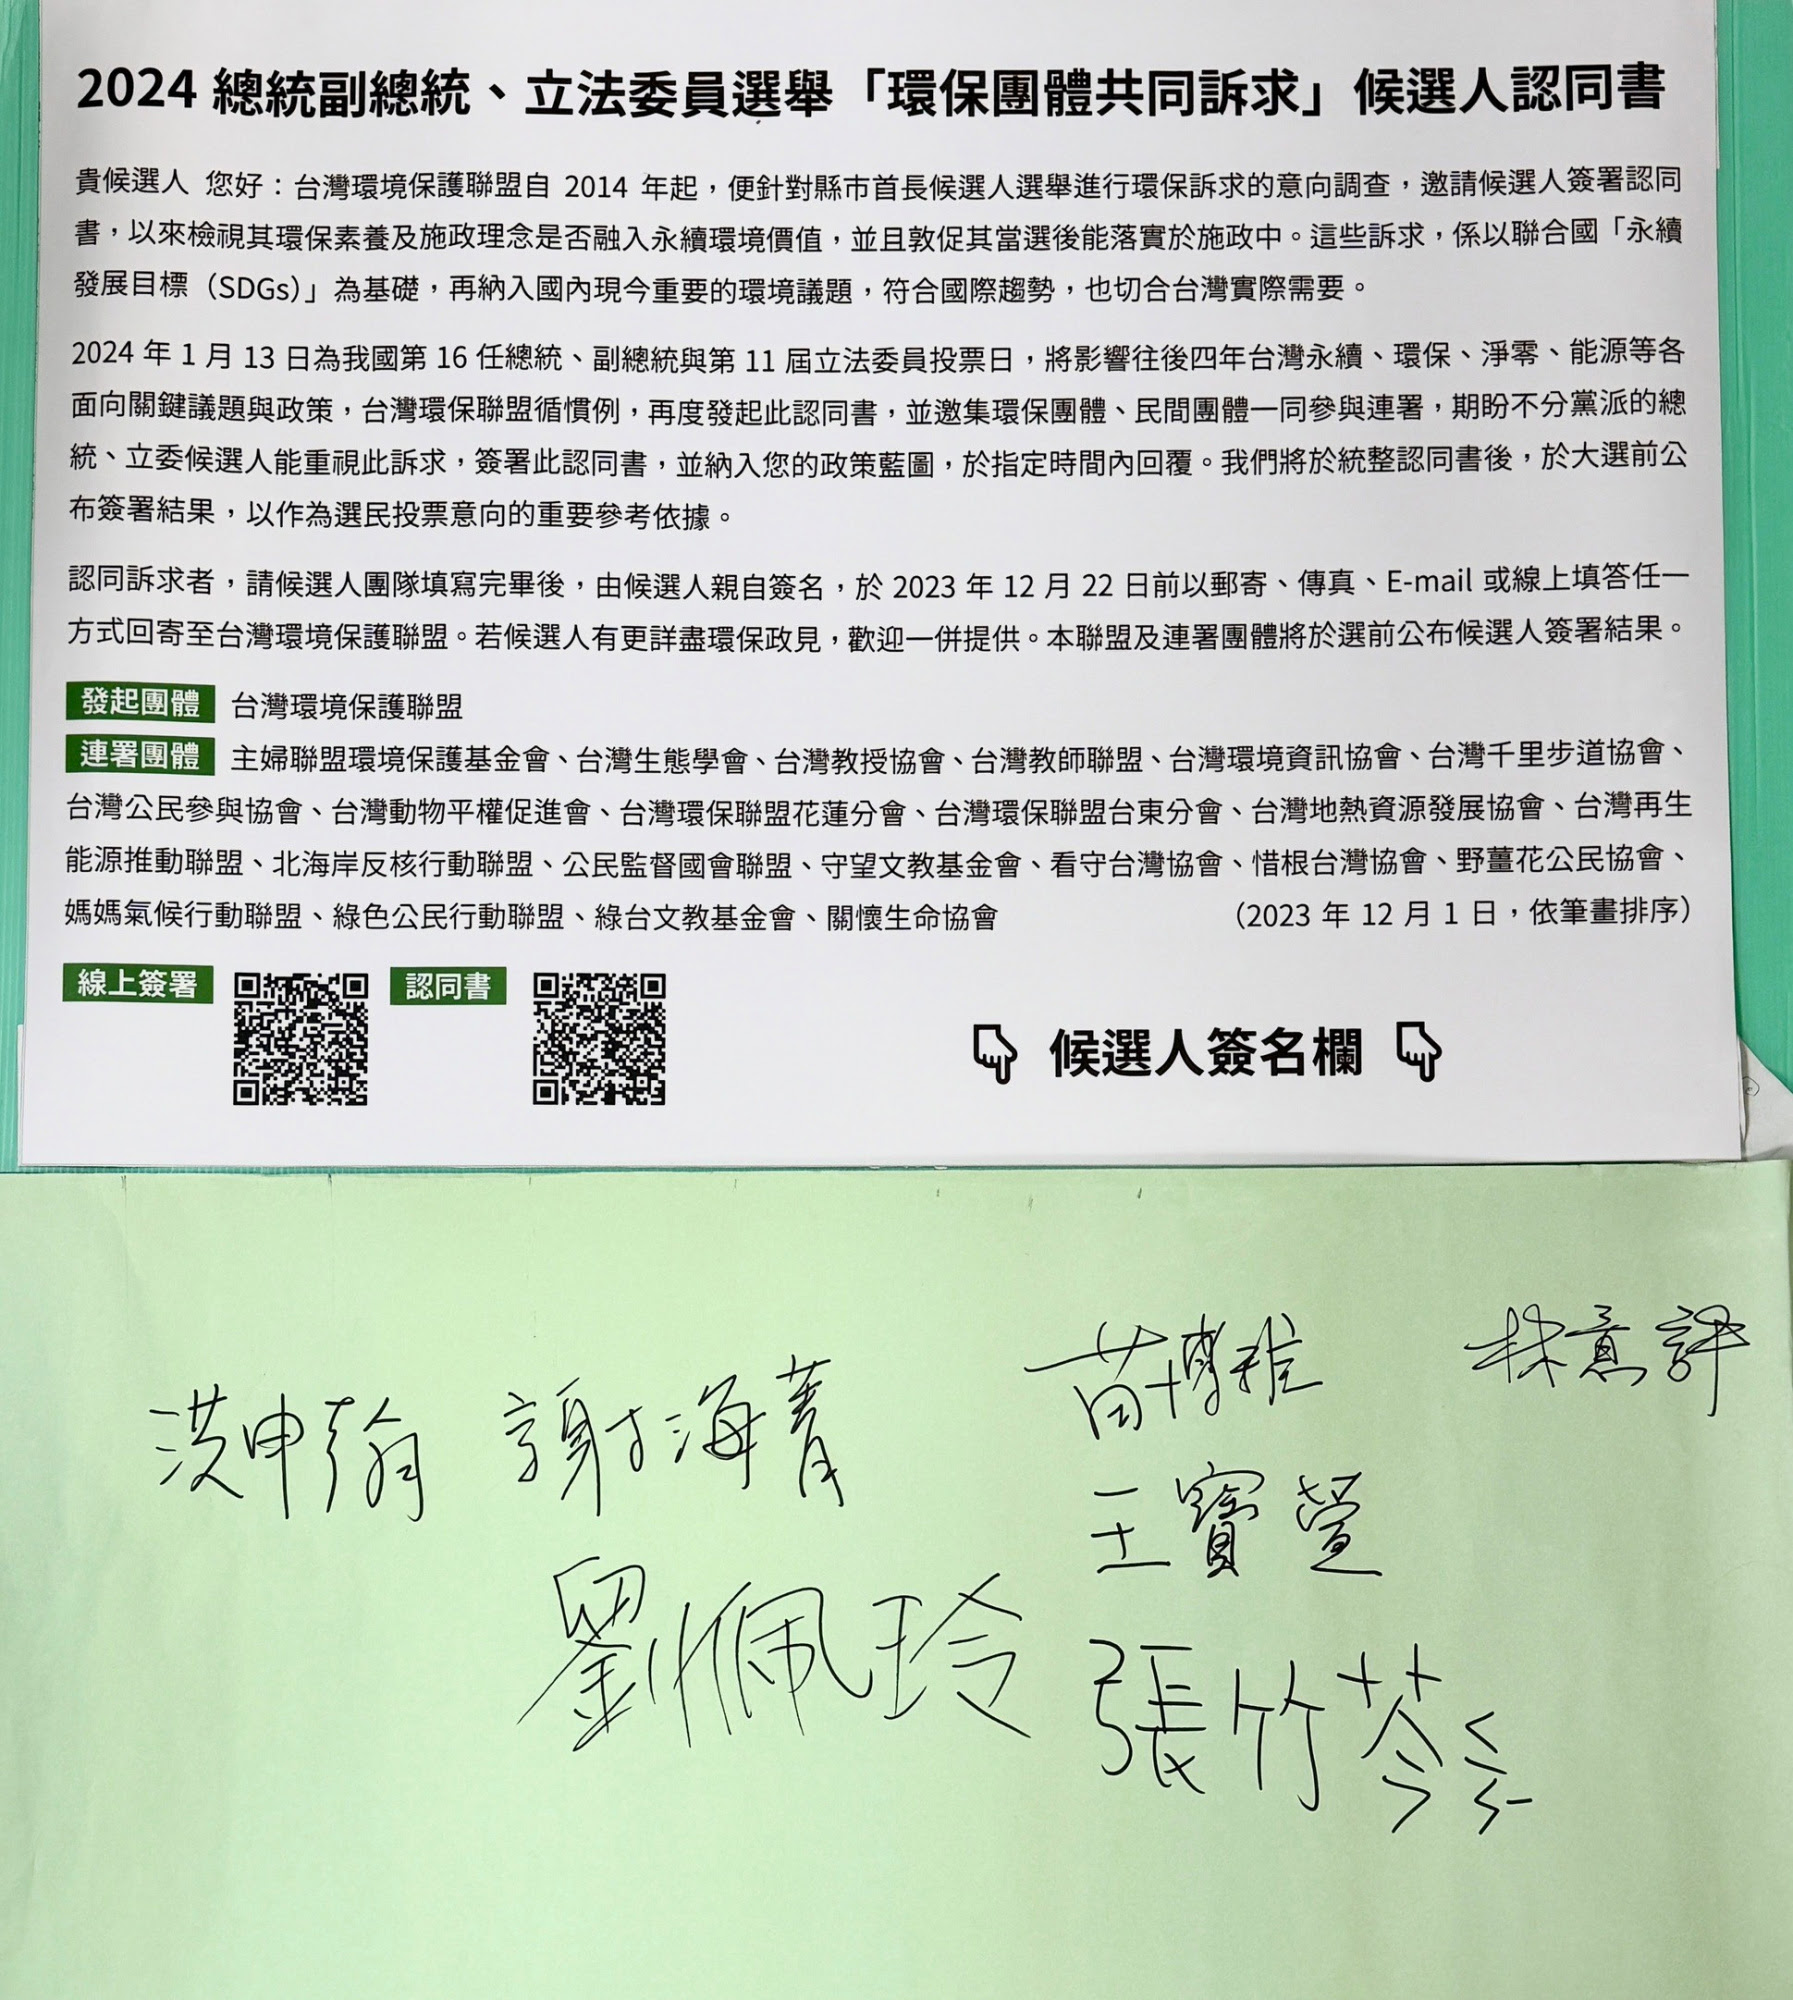 2024 總統副總統、立法委員選舉「環保團體共同訴求」候選人認同書
貴候選人 您好：台灣環境保護聯盟自 2014 年起，便針對縣市首長候選人選舉進行環保訴求的意向調查，邀請候選人簽署認同
書，以來檢視其環保素養及施政理念是否融入永續環境價值，並且敦促其當選後能落實於施政中。這些訴求，係以聯合國「永續
發展目標（SDGs）」為基礎，再納入國內現今重要的環境議題，符合國際趨勢，也切合台灣實際需要。
2024 年 1 月 13 日為我國第 16 任總統、副總統與第 11 屆立法委員投票日，將影響往後四年台灣永續、環保、淨零、能源等各
面向關鍵議題與政策，台灣環保聯盟循慣例，再度發起此認同書，並邀集環保團體、民間團體一同參與連署，期盼不分黨派的總
統、立委候選人能重視此訴求，簽署此認同書，並納入您的政策藍圖，於指定時間內回覆。我們將於統整認同書後，於大選前公
布簽署結果，以作為選民投票意向的重要參考依據。
認同訴求者，請候選人團隊填寫完畢後，由候選人親自簽名，於 2023 年 12 月 22 日前以郵寄、傳真、E-mail 或線上填答任一
方式回寄至台灣環境保護聯盟。若候選人有更詳盡環保政見，歡迎一併提供。本聯盟及連署團體將於選前公布候選人簽署結果。
發起團體 台灣環境保護聯盟
連署團體 主婦聯盟環境保護基金會、台灣生態學會、台灣教授協會、台灣教師聯盟、台灣環境資訊協會、台灣千里步道協會、
台灣公民參與協會、台灣動物平權促進會、台灣環保聯盟花蓮分會、台灣環保聯盟台東分會、台灣地熱資源發展協會、台灣再生
能源推動聯盟、北海岸反核行動聯盟、公民監督國會聯盟、守望文教基金會、看守台灣協會、惜根台灣協會、野薑花公民協會、
媽媽氣候行動聯盟、綠色公民行動聯盟、綠台文教基金會、關懷生命協會 （2023 年 12 月 1 日，依筆畫排序）
線上簽署 認同書 候選人簽名欄
苗博雅 林意評
洪申翰 謝海菁
王寶萱
劉佩玲 張竹芩